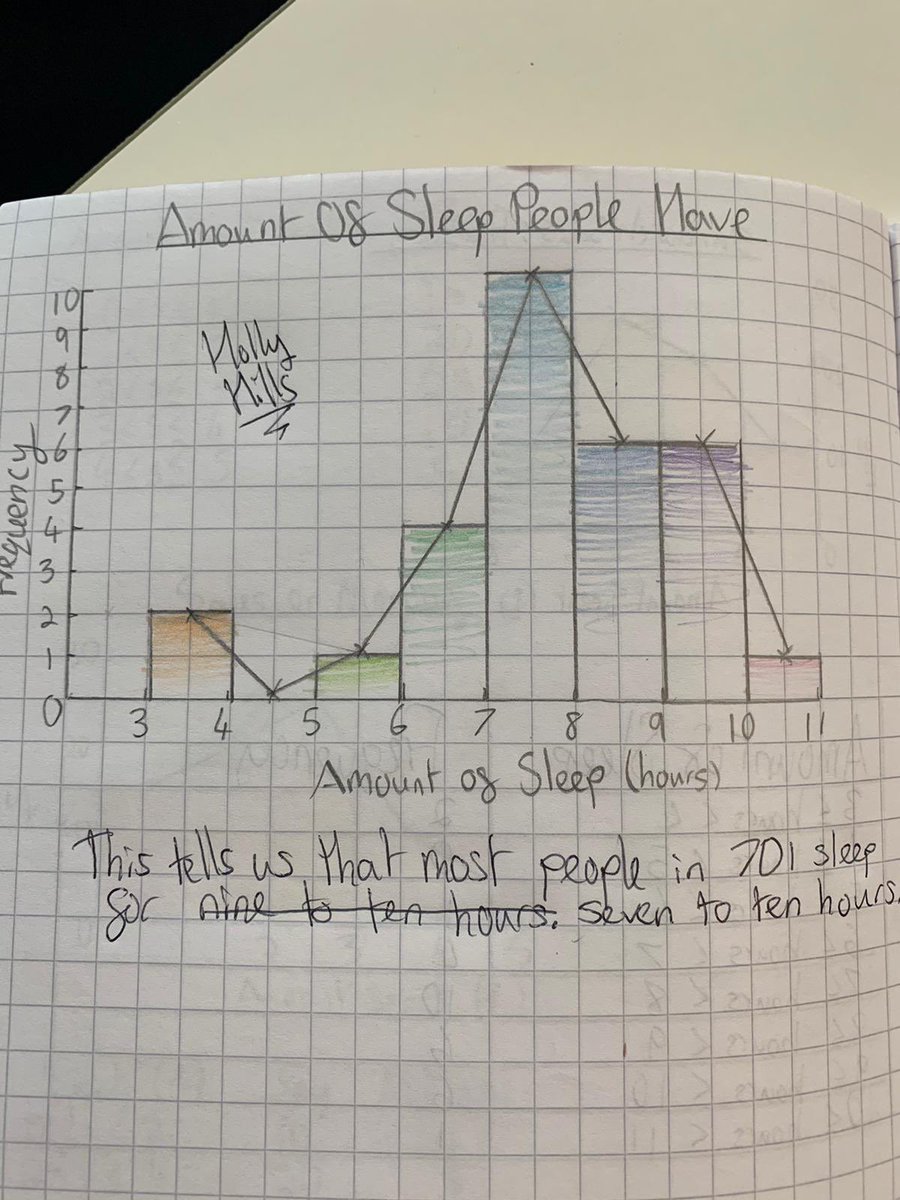 Amount Of Sleep People Have
10
9
8
7
6
5
4
3
2
1
0
Frequency
Holly
Mills
3 4 5 6 7 8 9 10 11
Amount of Sleep (hours)
This tells us that most people in 701 sleep
for nine to ten hours. seven to ten hours.